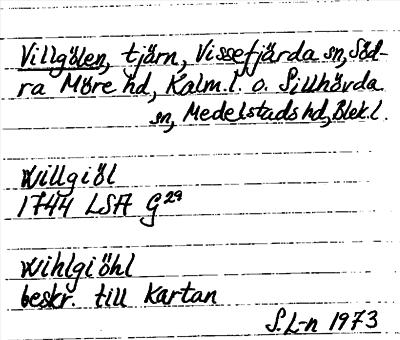 Villgölen, tjärn, Vissefjärda sn, Söd-
ra Möre hd, Kalm.l. o. Sillhövda
sn, Medelstads hd, Blek.l.
Willgiöl
1744 LSA G29
Wihlgiöhl
beskr. till kartan
S.L-n 1973